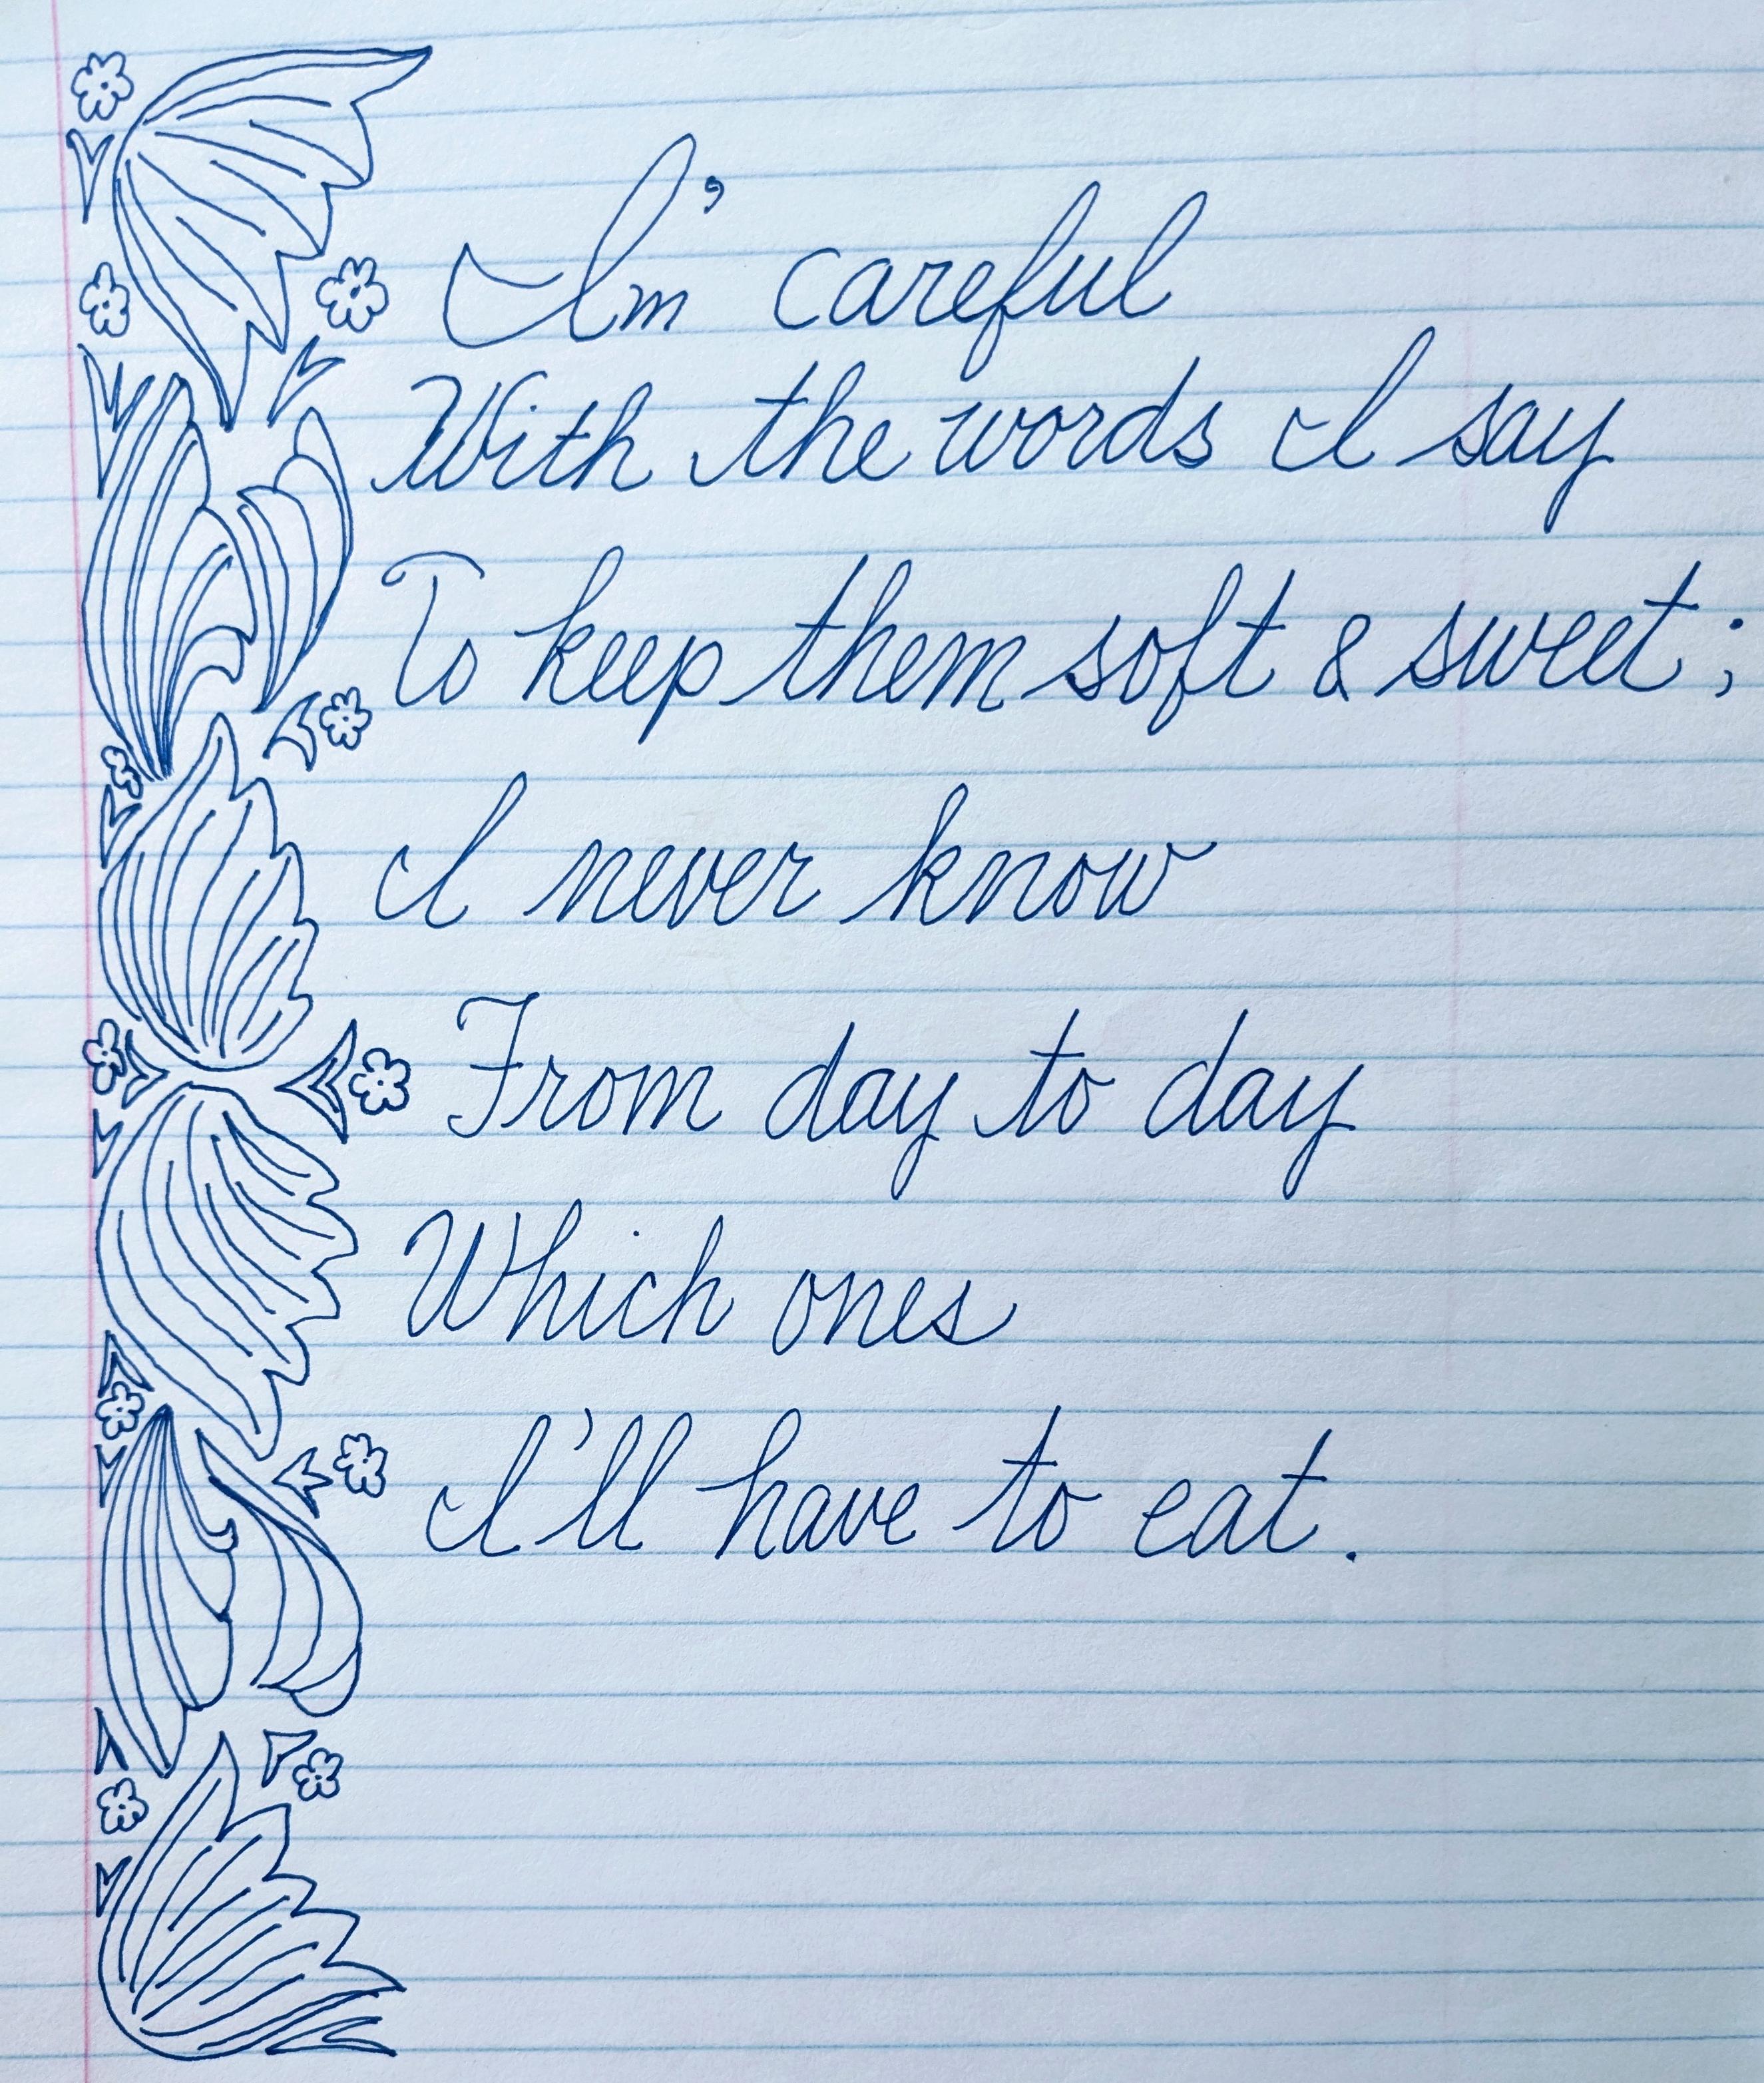 I'm careful
With the words I say
To keep them soft & sweet;
I never know
From day to day
Which ones
I'll have to eat.